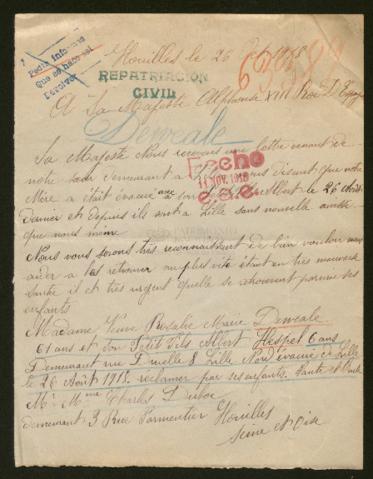 Houilles le 26 1918
63882
Pedir informes
Que se hace así
Devolver
REPATRIACION
CIVIL
A Sa Majesté Alphonse XIII Roi D'Espagne
Deweale
Sa Majesté Nous recevons une lettre venant de
notre sœur demeurant à nous disant que notre
Mère a était évacué avec son Albert le 26 Août
dernier et depuis ils sont a Lille sans nouvelle
que nous même
Hecho
11 NOV. 1918
Nous vous serons très reconnaissant de bien vouloir nous
aider a les retrouver au plus vite étant en très mauvaise
Santé il et très urgent quelle se retrouvent parmie ses
enfants
Madame Veuve Rosalie Marie Deweale
61 ans et son Petit Fils Albert Hespel 6 ans
Demeurant rue 8 Lille Nord évacué de Lille
le 26 Août 1918. réclamer par ses enfants. Tante et Oncle
Mr Mme Charles Duboc
demeurant 3 Rue Parmentier Houilles
Seine et Oise